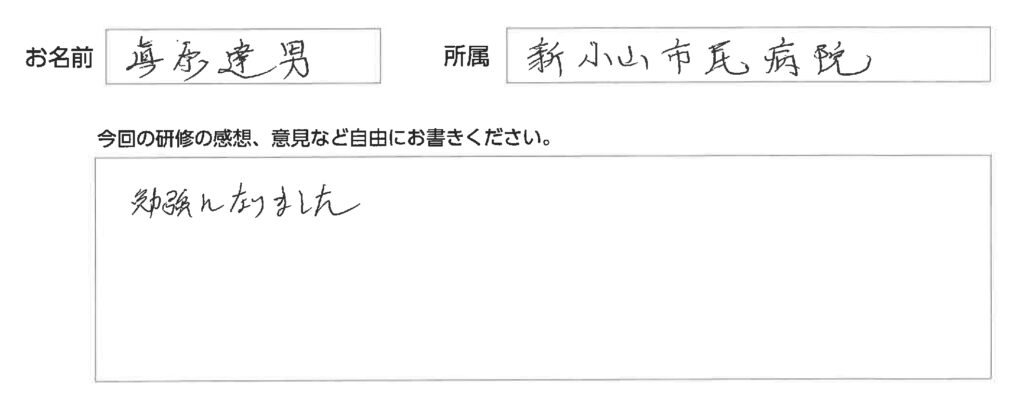 お名前 真原達男 所属 新小山市民病院
今回の研修の感想、意見など自由にお書きください。
勉強になりました